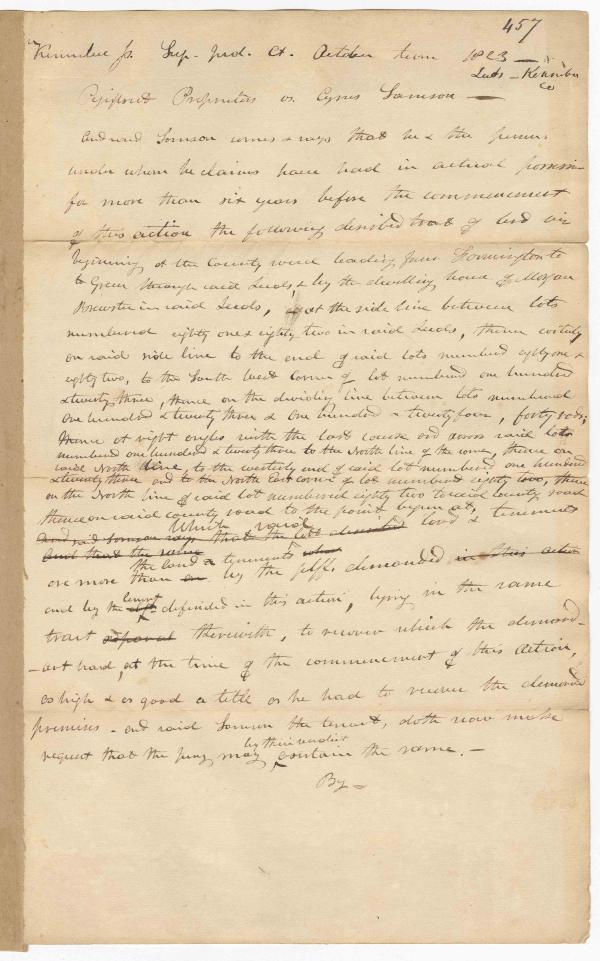 457
Kennebec ss. Sup. Jud. Ct. October term 1823 —
Leeds - Kennebec Co
Pejepscot Proprietors vs. Cyrus Samson —
And said Samson comes & says that he & the persons
under whom he claims have had in actual possession
for more than six years before the commencement
of this action the following described tract of land viz
beginning at the County road leading from Farmington to
to Green through said Leeds, & by the dwelling house of Morgan
Brewster in said Leeds, at the side line between lots
numbered eighty one & eighty two in said Leeds, thence easterly
on said side line to the end of said lots numbered eighty one &
eighty two, to the South West Corner of lot numbered one hundred
& twenty three, thence on the dividing line between lots numbered
one hundred & twenty three & one hundred & twenty four, forty rods;
thence at right angles with the last course and across said lots
numbered one hundred & twenty three to the North line of the same, thence on
said North line, to the westerly end of said lot numbered one hundred
& twenty three and to the North East corner of lot numbered eighty two, thence
on the North line of said lot numbered eighty two to said County road
thence on said county road to the point begun at,
Which said
and said Samson says that the last described land & tenements
and that the same the land & tenements
are more than by the plffs demanded in this action
and by the tenant defended in this action, lying in the same
tract therewith, to recover which the demand-
-ant had, at the time of the commencement of this action,
as high & as good a title as he had to recover the demanded
premises - and said Samson the tenant, doth now make
by their verdict
request that the jury may ascertain the same. —
By —